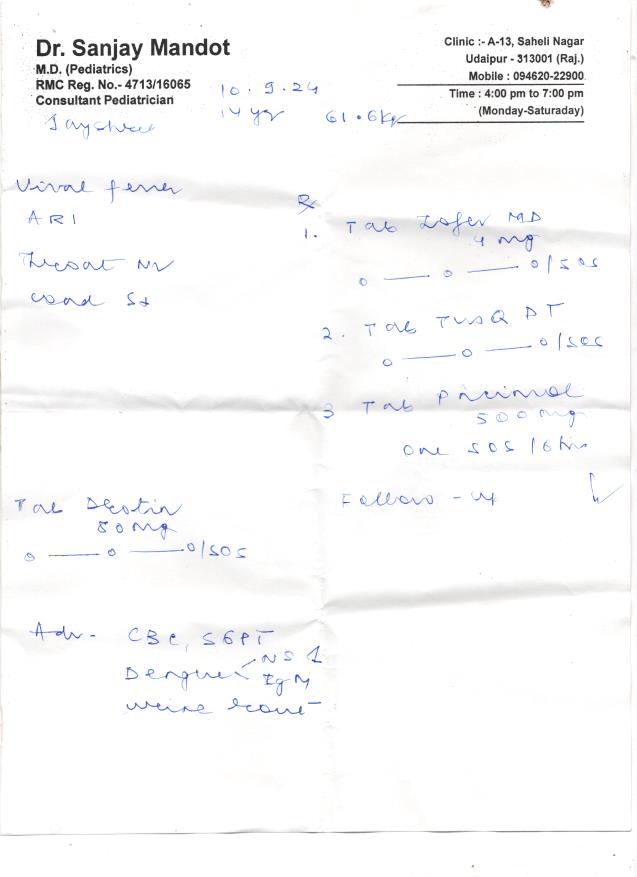 Dr. Sanjay Mandot
M.D. (Pediatrics)
RMC Reg. No.- 4713/16065
Consultant Pediatrician
Clinic :- A-13, Saheli Nagar
Udaipur - 313001 (Raj.)
Mobile : 094620-22900
Time : 4:00 pm to 7:00 pm
(Monday-Saturaday)
10.9.24
14 yr 61.6kg
Viral fever
ARI
Throat
Rx
1. Tab Zofer MD
4 mg
0 — 0 — 0/SOS
2. Tab TUSQ DT
0 — 0 — 0/SOS
3 Tab
500mg
one SOS / 6 hr
Follow - up
Tab
50 mg
0 — 0 — 0/SOS
Adv - CBC, SGPT
Dengue NS1
IgM